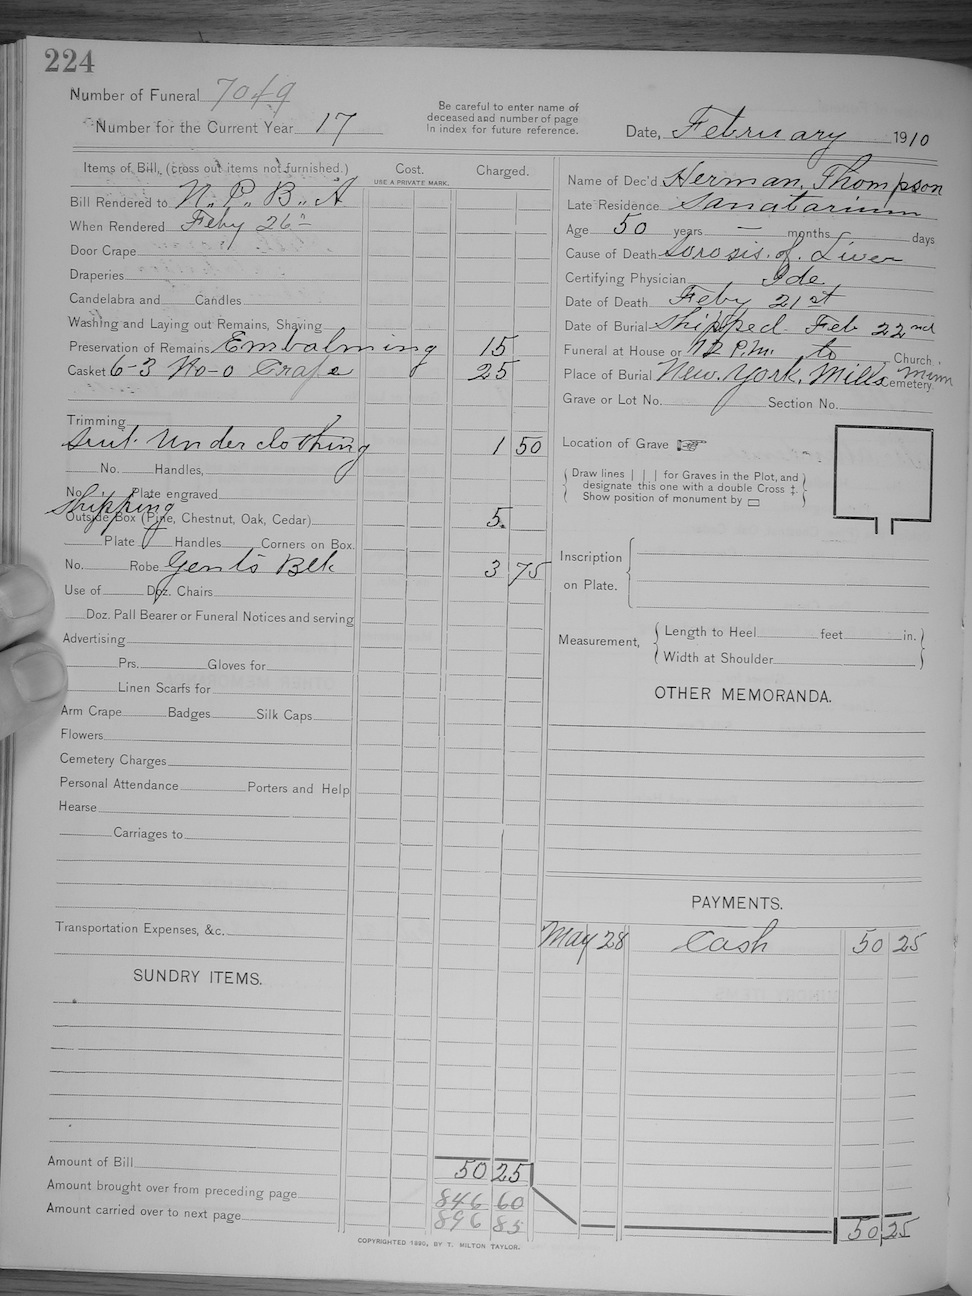 224
Number of Funeral 7049
Number for the Current Year 17
Be careful to enter name of
deceased and number of page
in index for future reference.
Date, February 1910
Items of Bill, (cross out items not furnished.)
Cost.
USE A PRIVATE MARK.
Charged.
Bill Rendered to N. P. B. A
When Rendered Feby 26
Door Crape
Draperies
Candelabra and Candles
Washing and Laying out Remains, Shaving
Preservation of Remains Embalming 15
Casket 6-3 No-0 Crape 25
Trimming
Suit Underclothing 1 50
No. Handles,
No. Plate engraved
shipping
Outside Box (Pine, Chestnut, Oak, Cedar) 5.
Plate Handles Corners on Box.
No. Robe Gents Blk 3 75
Use of Doz. Chairs
Doz. Pall Bearer or Funeral Notices and serving
Advertising
Prs. Gloves for
Linen Scarfs for
Arm Crape Badges Silk Caps
Flowers
Cemetery Charges
Personal Attendance Porters and Help
Hearse
Carriages to
Transportation Expenses, &c.
SUNDRY ITEMS.
Amount of Bill 50 25
Amount brought over from preceding page 846 60
Amount carried over to next page 896 85
COPYRIGHTED 1890, BY T. MILTON TAYLOR.
Name of Dec'd Herman. Thompson
Late Residence Sanatarium
Age 50 years — months days
Cause of Death Sorosis. of. Liver
Certifying Physician Ide
Date of Death Feby 21st
Date of Burial Shipped Feb 22nd
Funeral at House or 12 P.M. to Church
Place of Burial New. York. Mills Minn Cemetery
Grave or Lot No. Section No.
Location of Grave
Draw lines | | | for Graves in the Plot, and
designate this one with a double Cross ‡.
Show position of monument by ▭
Inscription
on Plate.
Measurement,
Length to Heel feet in.
Width at Shoulder
OTHER MEMORANDA.
PAYMENTS.
May 28 Cash 50 25
50 25